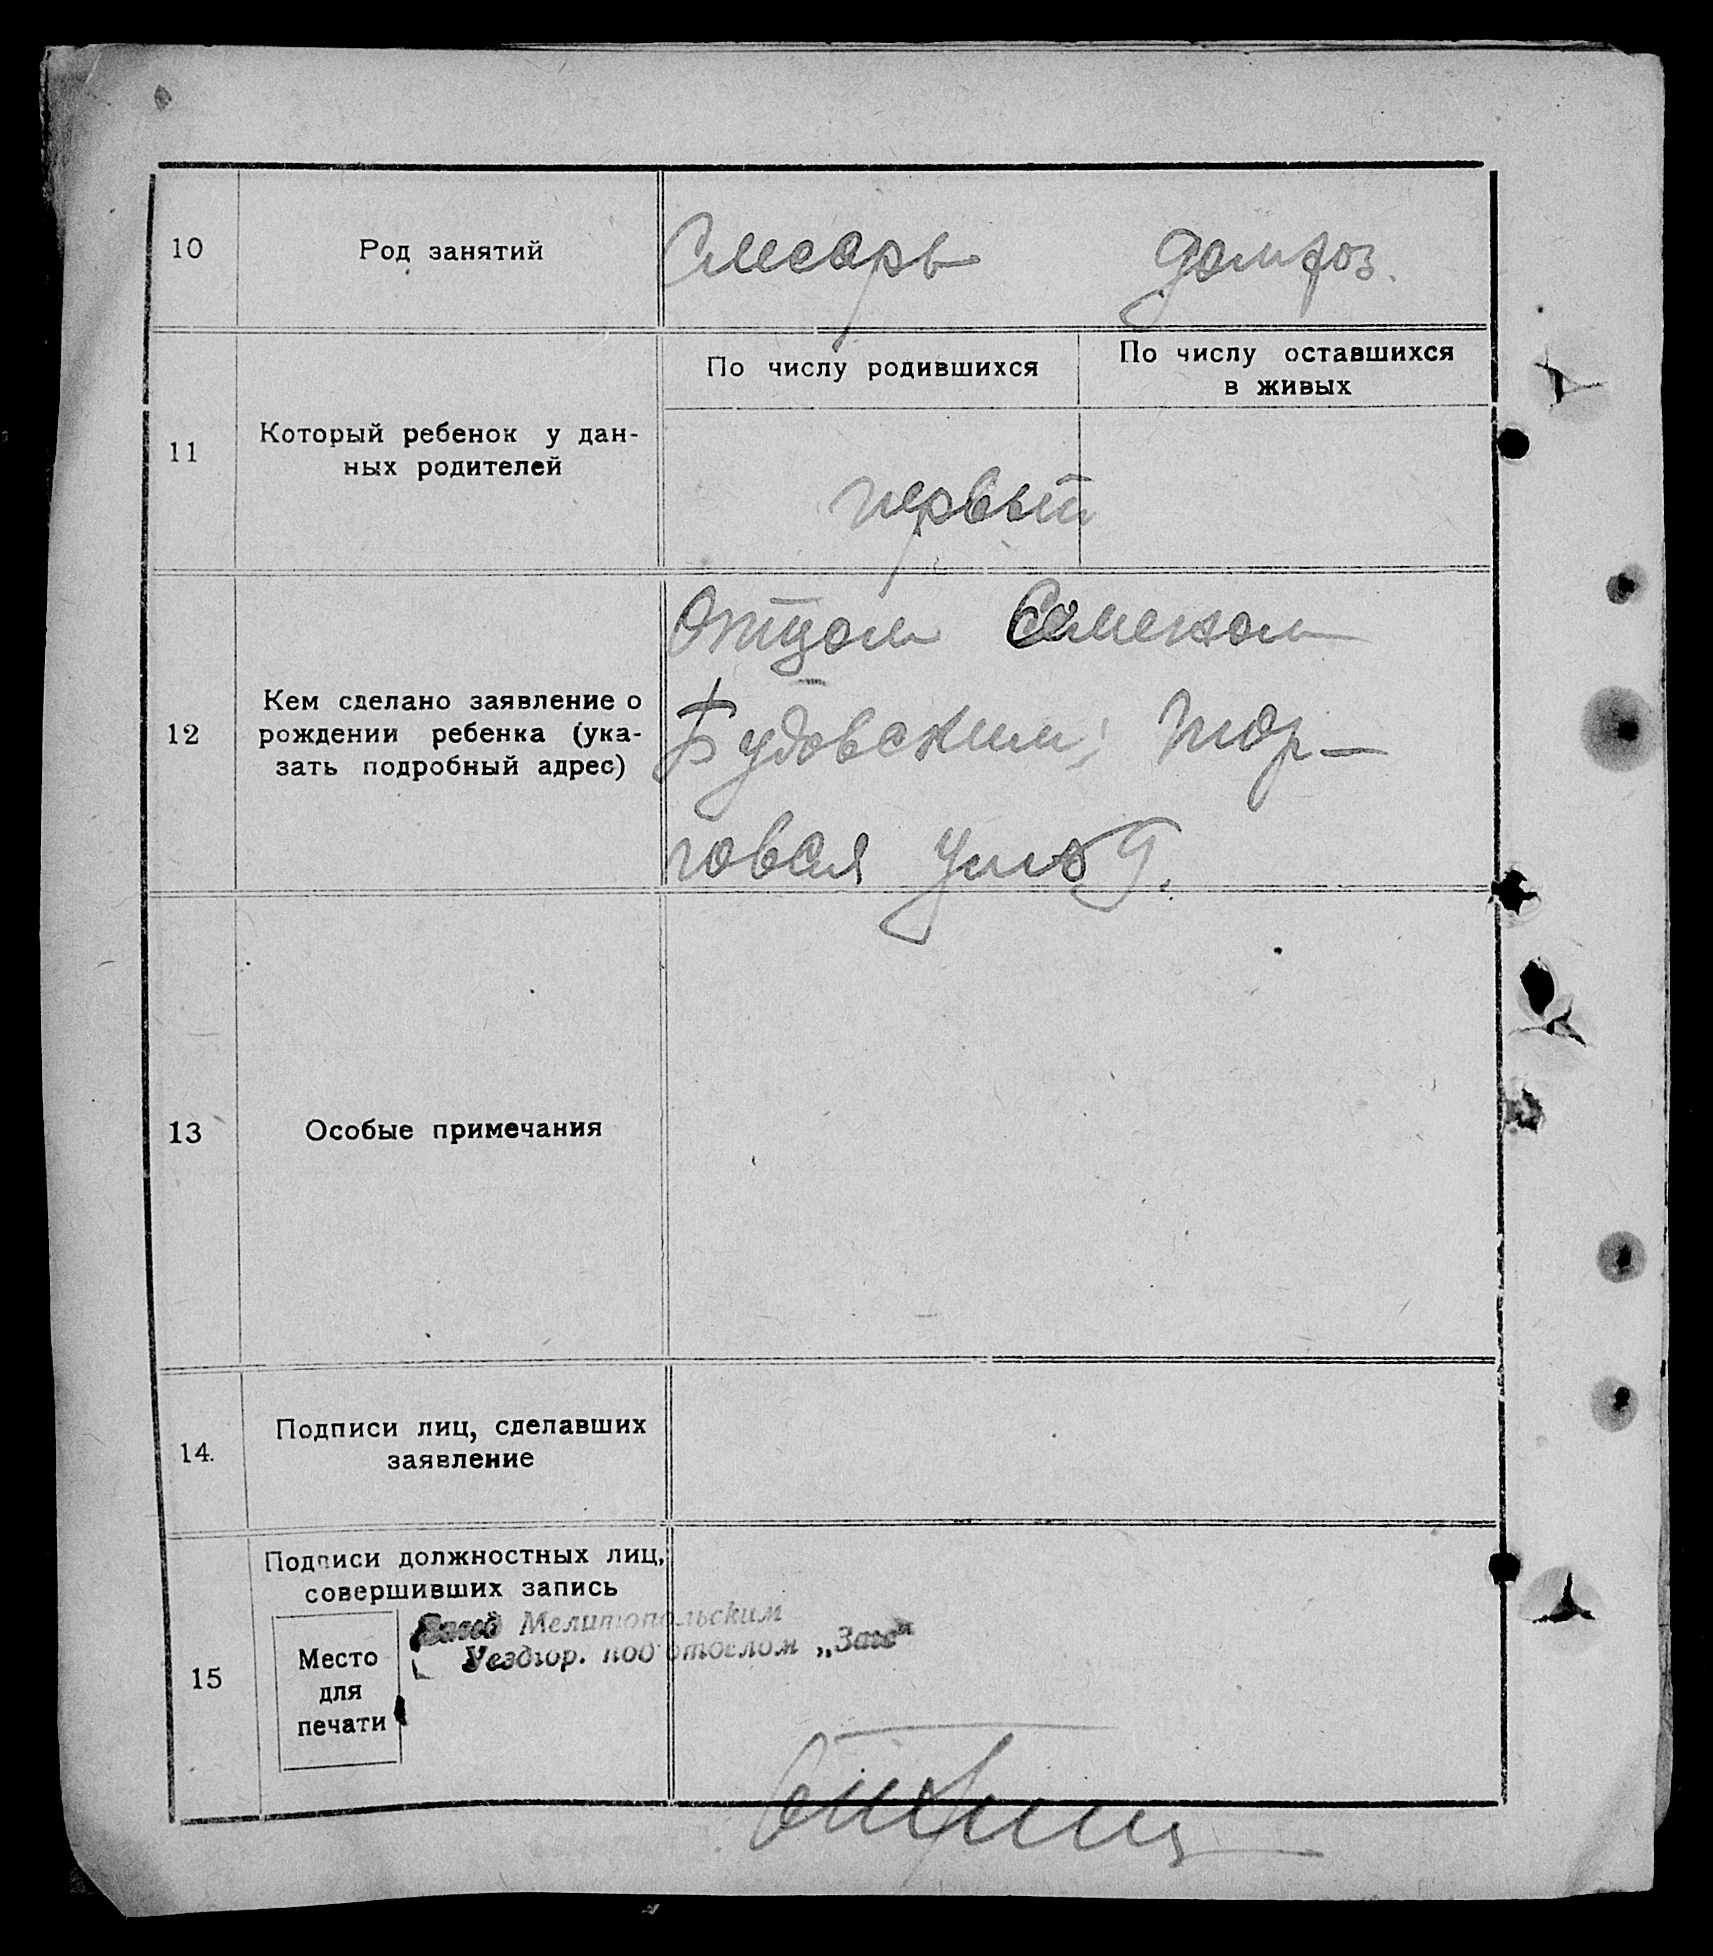 10 Род занятий Слесарь домхоз.
По числу родившихся По числу оставшихся
в живых
11 Который ребенок у дан-
ных родителей
первый
Отцом Семеном
12 Кем сделано заявление о
рождении ребенка (ука-
зать подробный адрес)
Будовским; Тор-
говая ул 9.
13 Особые примечания
14. Подписи лиц, сделавших
заявление
15 Подписи должностных лиц,
совершивших запись
Место
для
печати
Мелитопольским
Уездгор. подотделом „Загс"